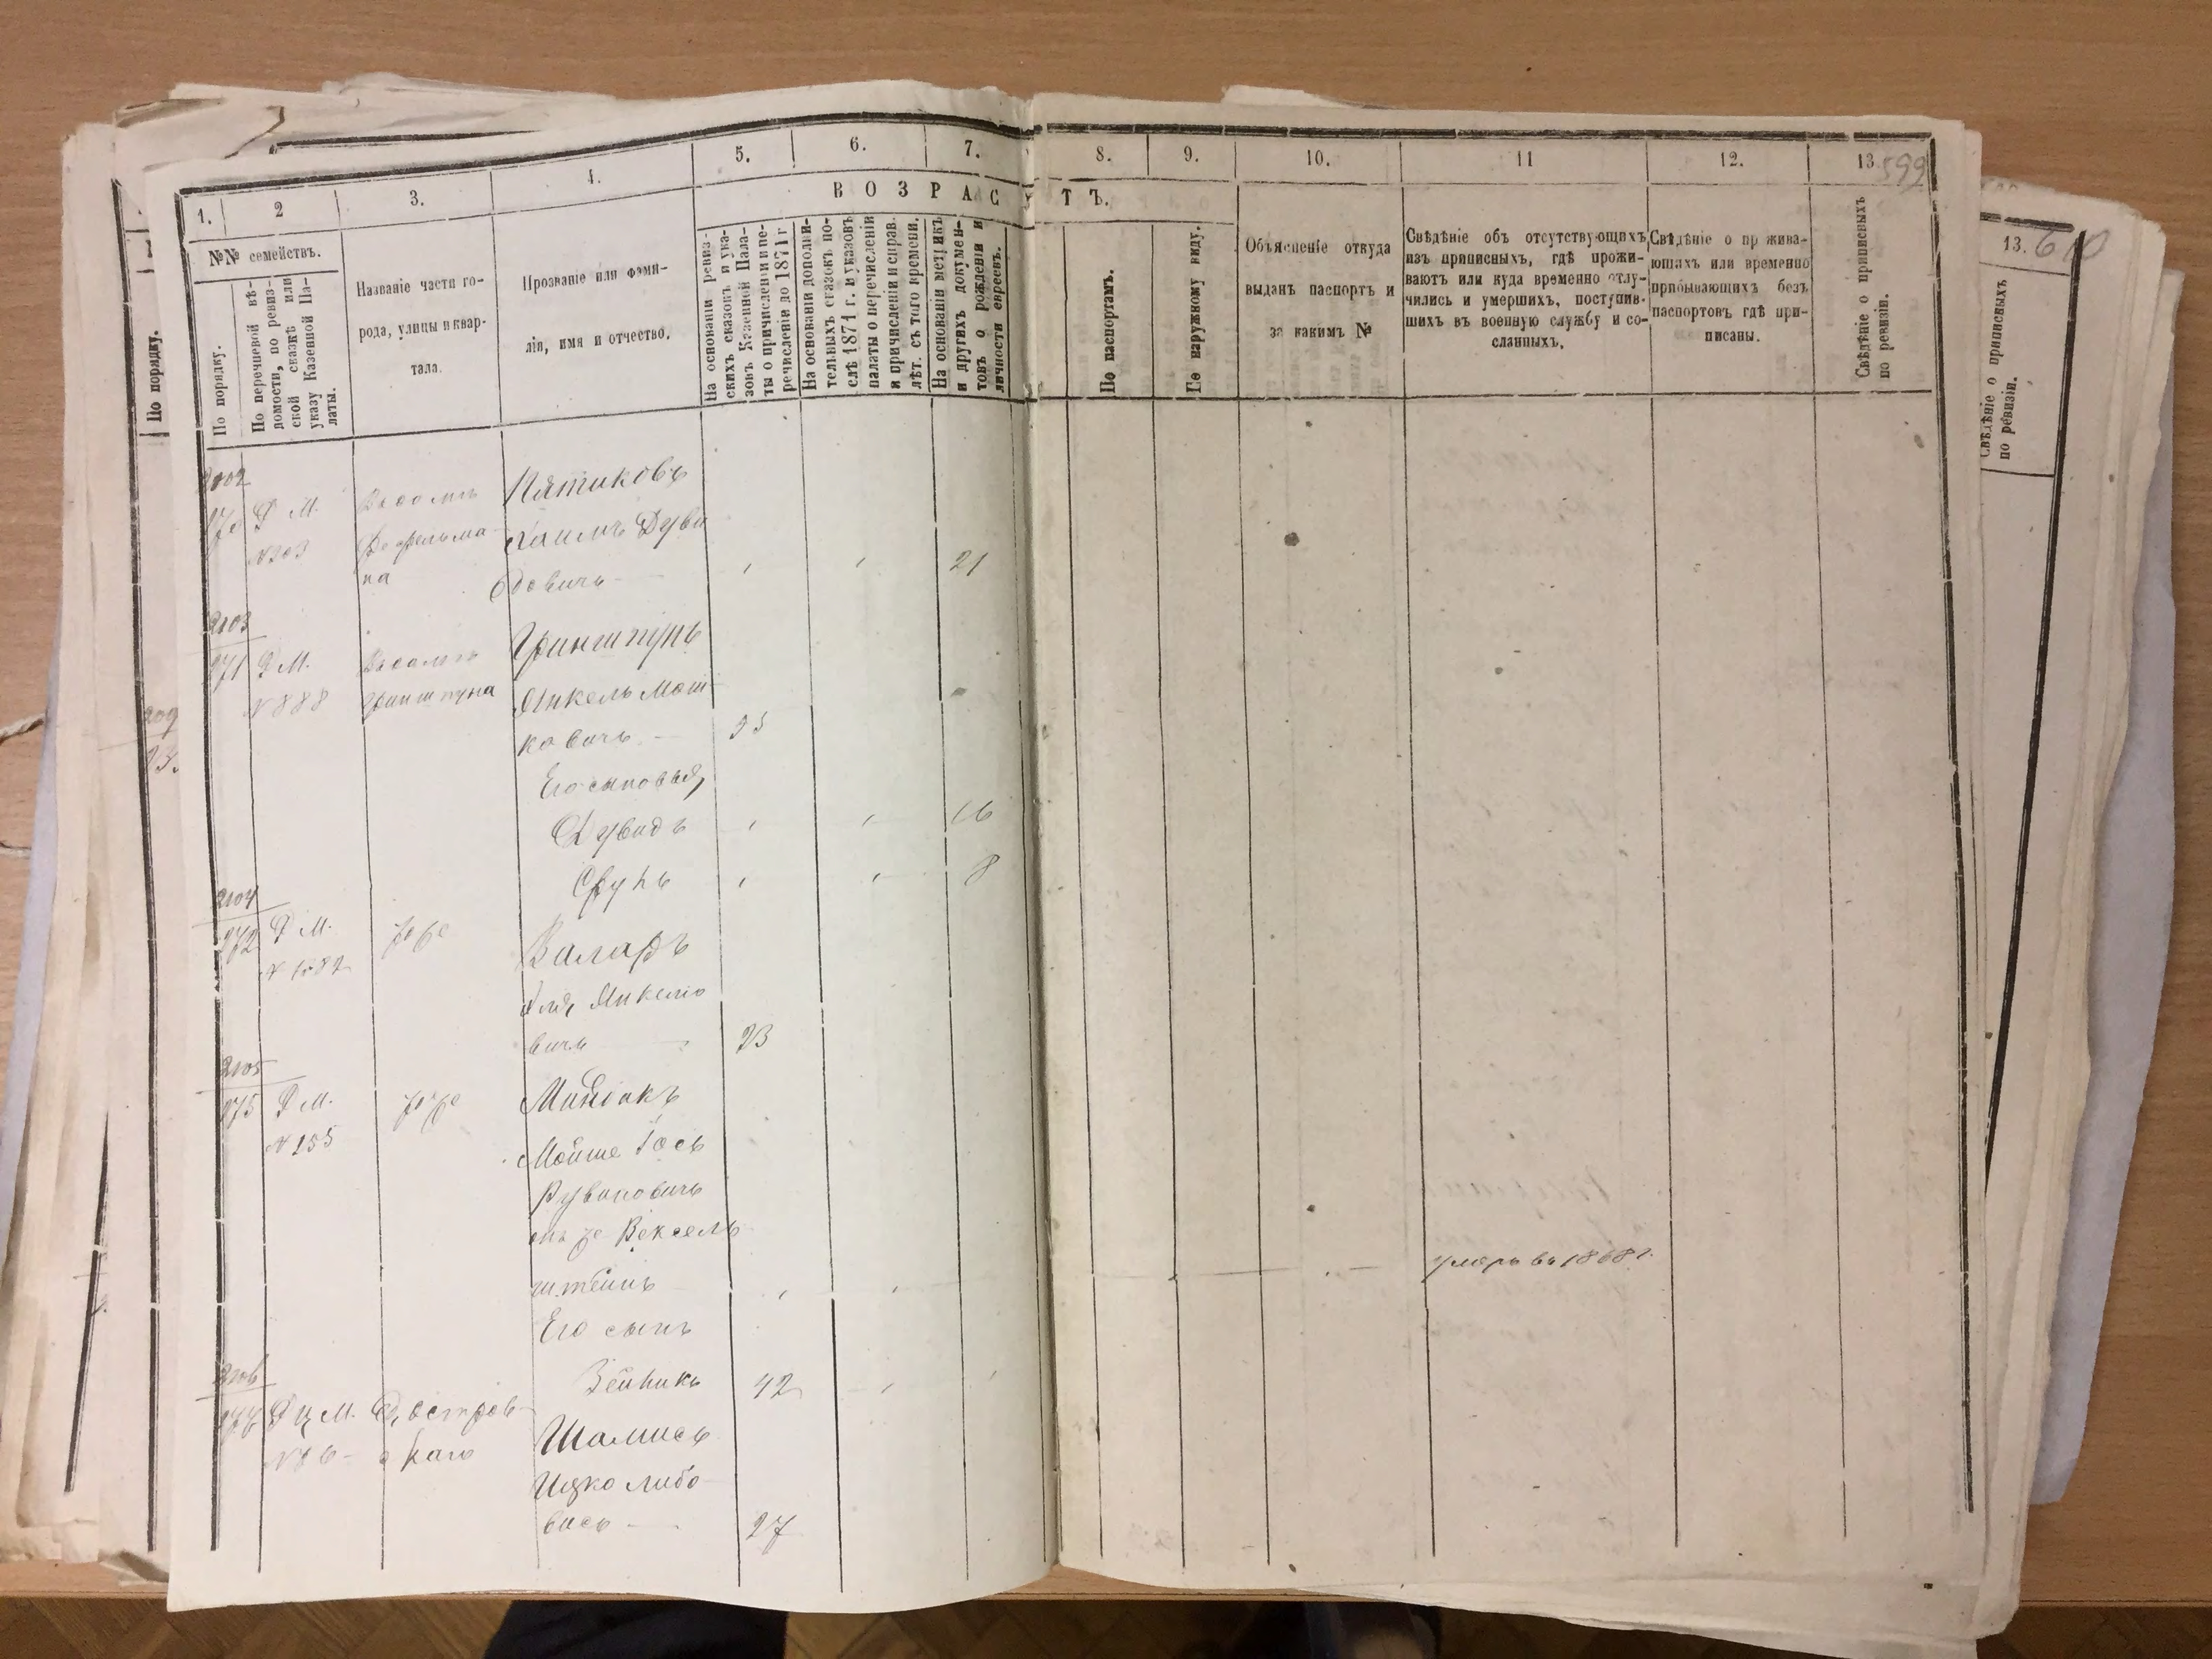 1.
2
3.
4.
5.
6.
7.
8.
9.
10.
11
12.
13
599
ВОЗРАСТЪ.
№№ семействъ.
По порядку.
По перечневой вѣ-
домости, по ревиз-
ской сказкѣ или
указу Казенной Па-
латы.
Названіе части го-
рода, улицы и квар-
тала.
Прозваніе или фами-
лія, имя и отчество.
На основаніи ревиз-
скихъ сказокъ и ука-
зовъ Казенной Пала-
ты о причисленіи и пе-
речисленіи до 1871 г
На основаніи дополни-
тельныхъ сказокъ по-
слѣ 1871 г. и указовъ
палаты о перечисленіи
и причисленіи и справ.
лѣт. съ того времени.
На основаніи метрикъ
и другихъ докумен-
товъ о рожденіи и
личности евреевъ.
По паспортамъ.
По наружному виду.
Объясненіе откуда
выданъ паспортъ и
за какимъ №
Свѣдѣніе объ отсутствующихъ
изъ приписныхъ, гдѣ прожи-
ваютъ или куда временно отлу-
чились и умершихъ, поступив-
шихъ въ военную службу и со-
сланныхъ.
Свѣдѣніе о прожива-
ющихъ или временно
прибывающихъ безъ
паспортовъ гдѣ при-
писаны.
Свѣдѣніе о приписныхъ
по ревизіи.
По порядку.
13.
610
Свѣдѣніе о приписныхъ
по ревизіи.
2102
Д М.
№303
Пятиковъ
Хаимъ Дуви
довичъ
21
2103
271 Д М.
№888
Гринштуна
Гринштунъ
Янкель Мош
ковичъ
Его сыновья
Дувидъ
16
Срулъ
8
2104
272 Д М.
тоже
Валаръ
Янкелио
вичъ
23
2105
275 Д М.
№155
тоже
Мойше Іось
Рувиновичъ
онъ же Вексель
штейнъ
умеръ въ 1868 г.
Его сынъ
Зейликъ
42
2106
Д Ц М.
Шамисъ
Ицко Либо
27